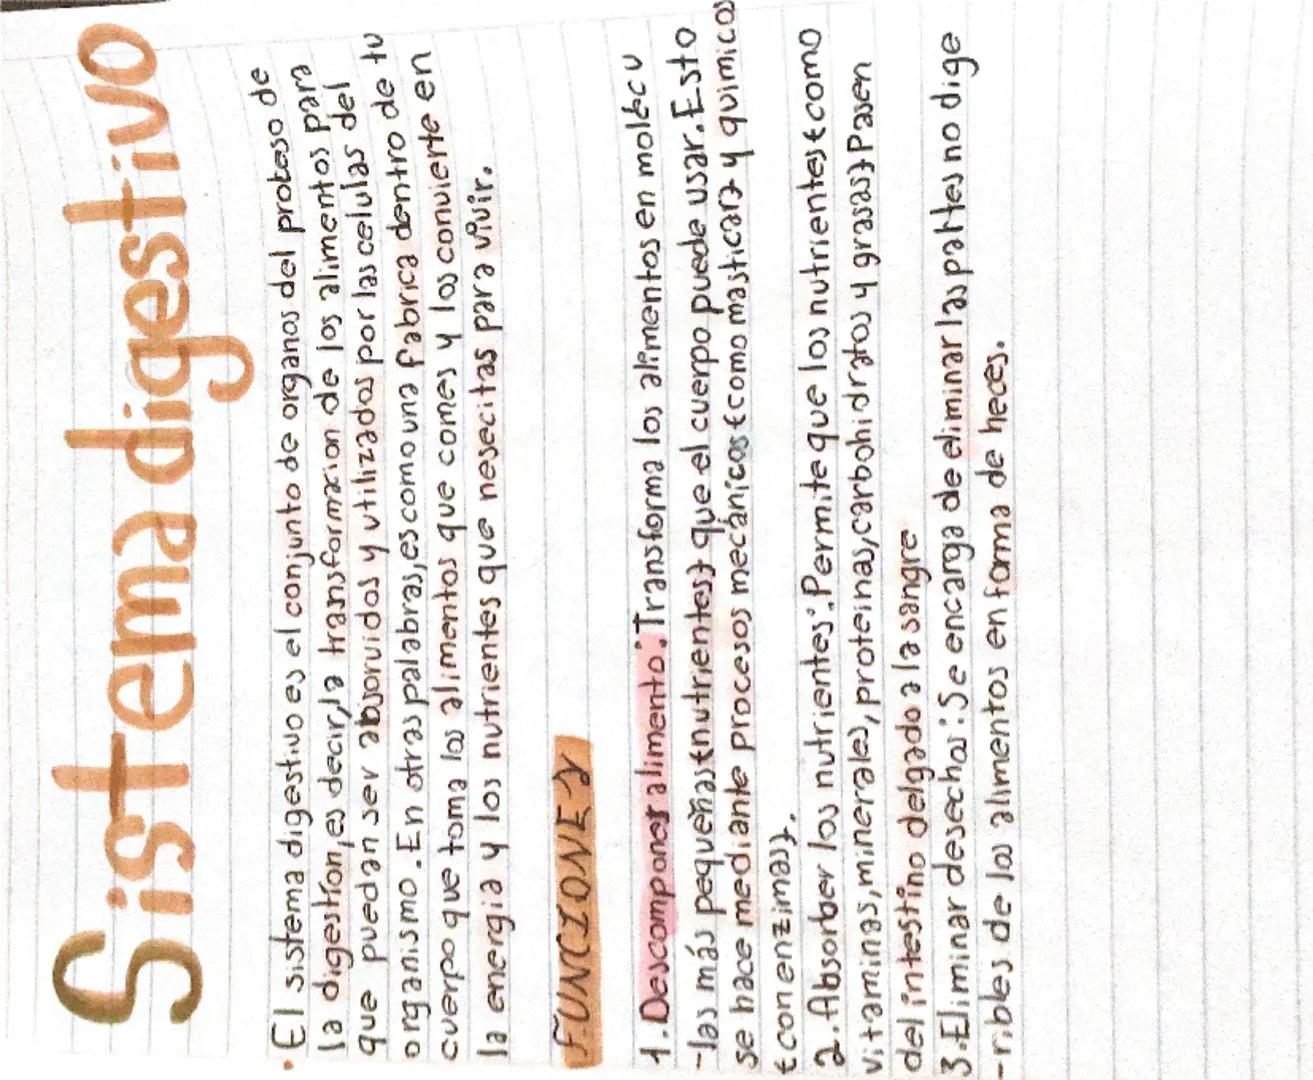 Sistema digestivo
• El sistema digestivo es el conjunto de organos del proceso de
la digestíon, es decir, la transformacion de los alimentos para
que puedan ser absorvidos y utilizados por las celulas del
organismo. En otras palabras, es como una fabrica dentro de tu
cuerpo que toma los alimentos que comes y los convierte en
la energia y los nutrientes que nesecitas para vivir.
FUNCIONES
1. Descomponer alimento: Transforma los alimentos en molécu
-las más pequeñas (nutrientes) que el cuerpo puede usar. Esto
se hace mediante procesos mecánicos (como masticar) y quimicos
(con enzimas).
2. Absorber los nutrientes: Permite que los nutrientes (como
vitaminas, minerales, proteinas, carbohidratos y grasas) Pasen
del intestino delgado a la sangre
3. Eliminar desechos: Se encarga de eliminar las partes no dige
-ribles de los alimentos en forma de heces.